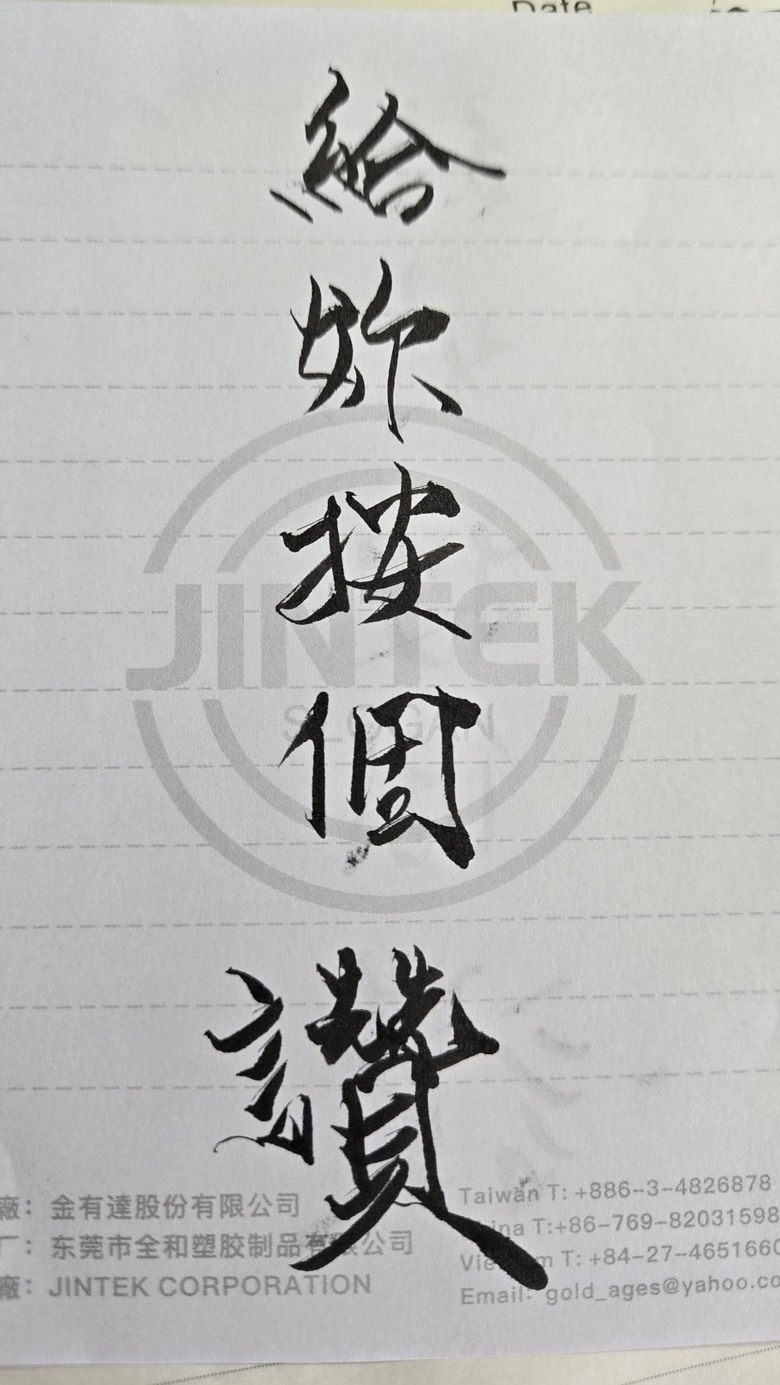 Date
給妳按個讚
JINTEK
SLOGAN
廠：金有達股份有限公司
厂：东莞市全和塑胶制品有限公司
廠：JINTEK CORPORATION
Taiwan T: +886-3-4826878
China T:+86-769-82031598
Vietnam T: +84-27-4651660
Email: gold_ages@yahoo.co